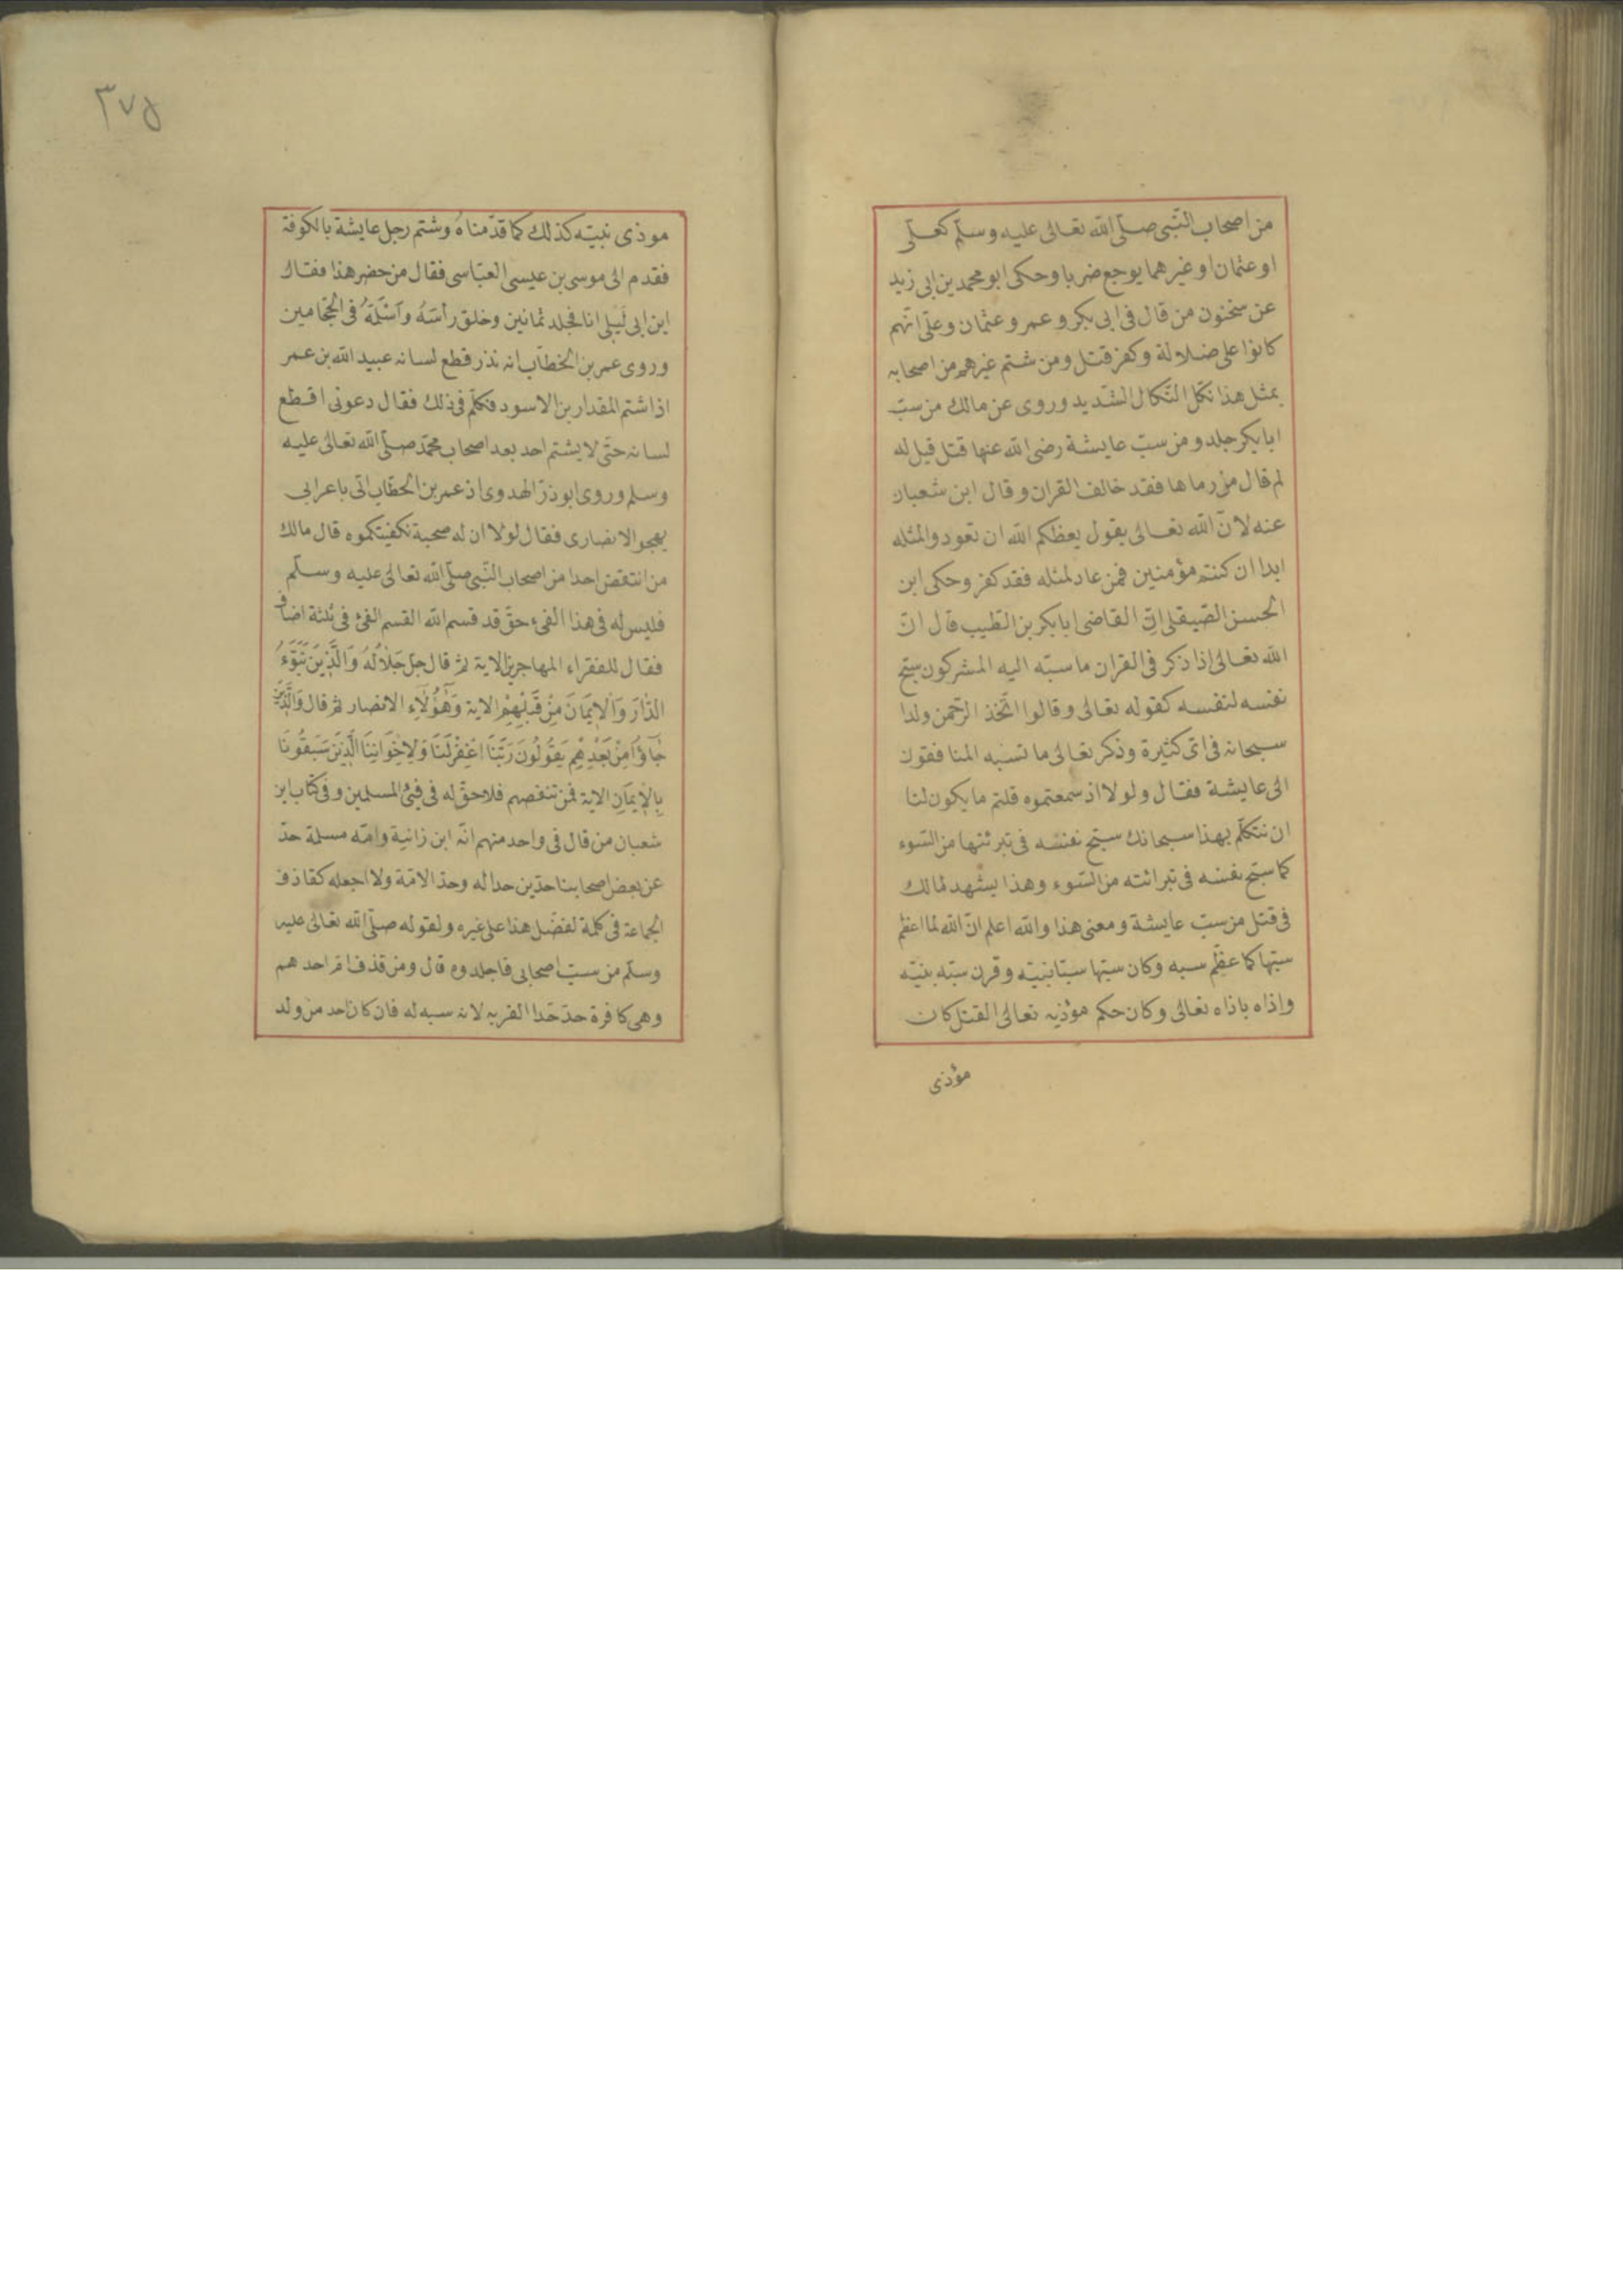 من اصحاب النّبى صلّى الله تعالى عليه وسلّم كعلّى
او عثمان او غيرهما يوجع ضربا وحكى ابو محمد بن ابى زيد
عن سخنون من قال فى ابى بكر و عمر و عثمان وعلّى انّهم
كانوا على ضلالة وكفر قتل ومن شتم غيرهم من اصحابه
بمثل هذا نكل النّكال الشّديد وروى عن مالك من سبّ
ابا بكر جلد ومن سبّ عايشة رضى الله عنها قتل قيل له
لم قال من رماها فقد خالف القران وقال ابن شعبان
عنه لانّ الله تعالى يقول يعظكم الله ان تعودوا لمثله
ابدا ان كنتم مؤمنين فمن عاد لمثله فقد كفر وحكى ابن
الحسن الصّيقلى انّ القاضى ابا بكر بن الطّيب قال انّ
الله تعالى اذا ذكر فى القران ما سبّه اليه المشركون سبّح
نفسه لنفسه كقوله تعالى وقالوا اتّخذ الرّحمن ولدا
سبحانه فى اى كثيرة وذكر تعالى ما تسبه المنا فقون
الى عايشة فقال ولولا اذ سمعتموه قلتم ما يكون لنا
ان نتكلّم بهذا سبحانك سبّح نفسه فى تبرئتها من السّوء
كما سبّح نفسه فى تبرائته من السّوء وهذا يشهد لمالك
فى قتل من سبّ عايشة ومعنى هذا والله اعلم انّ الله لما اعظم
سبّها كما عظّم سبه وكان سبّها سبّا نبيّه وقرن سبّه بنبيّه
واذاه باذاه تعالى وكان حكم مؤذيه تعالى القتل كان
مؤذى
٣٧٥
موذى نبيّه كذلك كما قدّمناهُ وشتم رجل عايشة بالكوفة
فقدم الى موسى بن عيسى العبّاسى فقال من حضر هذا فقال
ابن ابى لَيْلى انا فجلد ثمانين وخلق رأسَهُ وَاسْلَمَهُ فى الحجّامين
وروى عمر بن الخطّاب انه نذر قطع لسانه عبيد الله بن عمر
اذ اشتم المقدار بن الاسود فكلّم فى ذلك فقال دعونى اقطع
لسانه حتّى لا يشتم احد بعد اصحاب محمّد صلّى الله تعالى عليه
وسلم وروى ابو ذرّ الهدوى اذ عمر بن الخطّاب اتى باعرابى
يهجو الانصارى فقال لولا ان له صحبة نكفيتكموه قال مالك
من انتقض احدا من اصحاب النّبى صلّى الله تعالى عليه وسلّم
فليس له فى هذا الفىء حقّ قد قسم الله القسم الفئ فى ثلثة اصناف
فقال للفقراء المهاجرين الاية ثم قال جلّ جَلالُهُ وَالَّذِينَ تَبَوَّءُ
الدّارَ وَالايمَانَ مِنْ قَبْلِهِمْ الاية وَهٰؤُلَاءِ الانصار ثم قال وَالَّذِينَ
جَاؤُا مِنْ بَعْدِهِمْ يَقُولُونَ رَبَّنَا اغْفِرْ لَنَا وَلِاخْوَانِنَا الَّذِينَ سَبَقُونَا
بِالايمَانِ الاية فمن تنقصهم فلا حقّ له فى فىء المسلمين وفى كتاب ابن
شعبان من قال فى واحد منهم انّه ابن زانية وامّه مسلمة حدّ
عن بعض اصحابنا حدّين حدا له وحدّ الامّة ولا اجعله كقاذف
الجماعة فى كلمة لفضل هذا على غيره ولقوله صلّى الله تعالى عليه
وسلّم من سبّ اصحابى فاجلدوه قال ومن قذف ام احد هم
وهى كافرة حدّ حَدا الفريه لانه سبه له فان كان احد من ولد